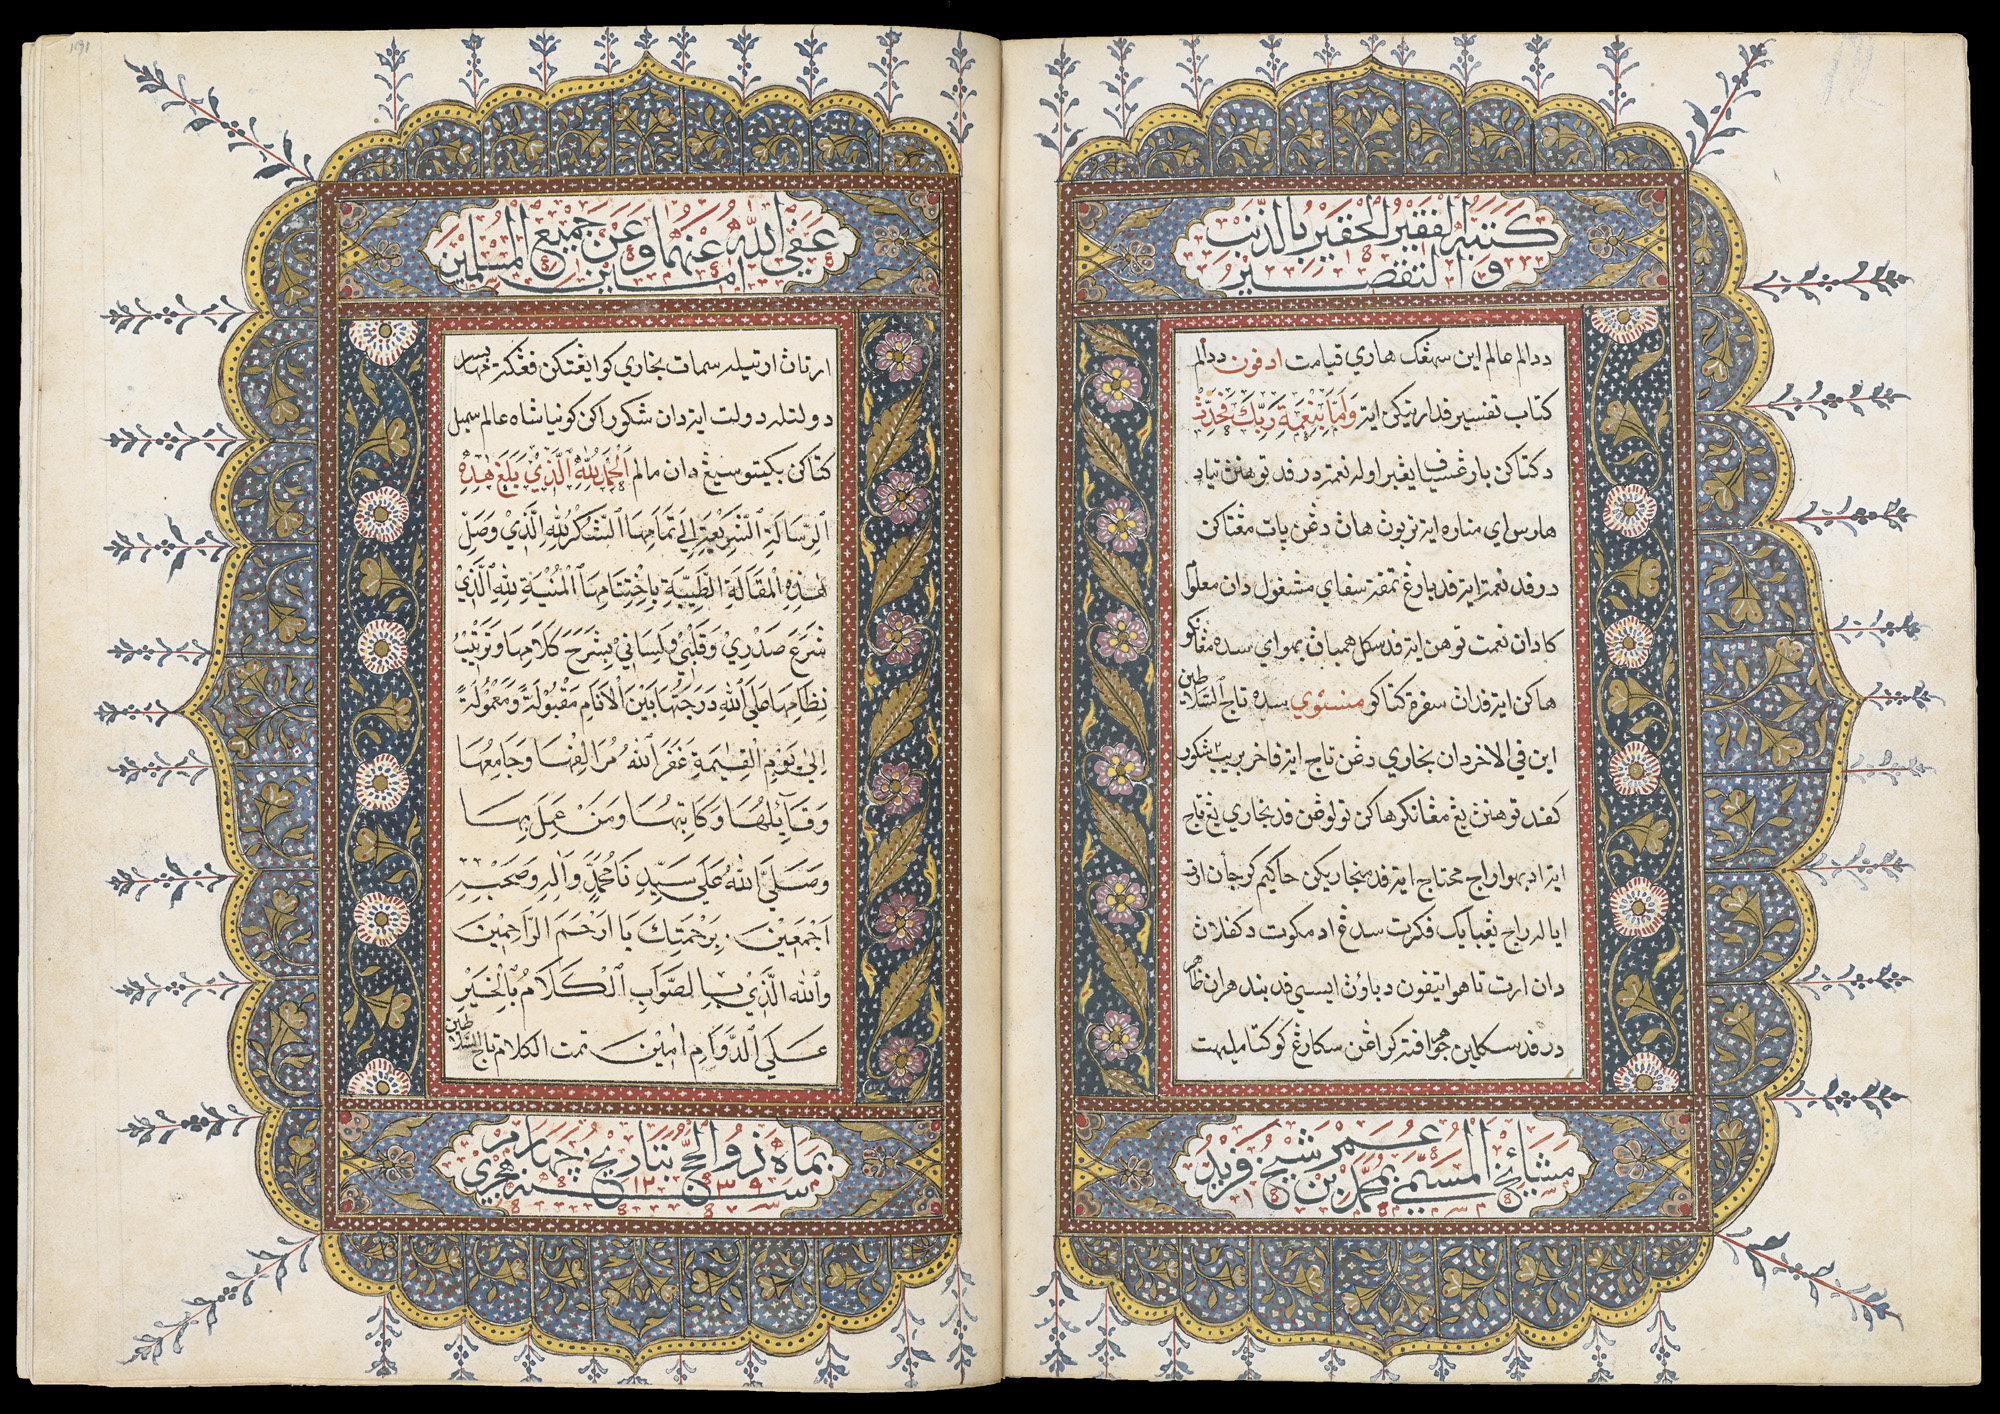 كَتَبَهُ الفَقِيرُ الحَقِيرُ بِالذَّنْبِ
وَالتَّقْصِيرِ
ددالم عالم اين سهڠك هاري قيامت ادفون ددالم
كتاب تفسير فد ارتيكن ايت وَاَمَا بِنِعْمَةِ رَبِّكَ فَحَدِّثْ
دكتاكن بارڠسياڤ ايڠبر اوله نعمة در فد توهنڽ تياد
هارس اي مناره ايت تربوڽ هاڽ دڠن يات مڠتاكن
درفد نعمة ايت فد يارڠ تمفت سفاي مشغول دان معلوم
كا دان نعمت توهن ايت فد سكل همباڽ بهواي سده مڠانكرو
هاكن ايت فداڽ سفرة كتاكو سده تاج السلاطين
اين في الاخر دان بخاري دڠن تاج ايت فاخر شكور
كفد توهنڽ يڠ مڠانكرهاكن تولوڠن فد بخاري يڠ تاج
ايت اد بهوا راج محتاج ايت فد منجاريكن حاكيم كرجأن ارت
ايا له راج يڠ بايك فكرت سدڠ اد مكوت دكفلاڽ
دان ارت تاهو اتيفون دباوڽ ايسي فد بندهران ظاهر
درفد سكلين سكارڠ كو كتا مليهت
مشائخ المسمى بمحمد بن
عمر شيخ فريد
عفى الله عنهما وعن جميع المسلمين
امين
ارتاڽ ارتيله سمات بخاري كو ايڠتكن فڠكت
دولتله دولت ايت دان شكور اكن كونيا شاه عالم سمبل
كتاكن بكيتو سيڠ دان مالم اَلْحَمْدُ لِلّٰهِ الَّذِيْ بَلَغَ هٰذِهِ
الرِّسَالَةِ الشَّرِيْعَةِ اِلَى تَمَامِهَا الشُّكْرُ لِلّٰهِ الَّذِيْ وَصَلَ
هٰذِهِ الْمَقَالَةِ الطَّيِّبَةِ بِاخْتِتَامِهَا الْمُنْيَةِ لِلّٰهِ الَّذِيْ
شَرَعَ صَدْرِيْ وَقَلْبِيْ وَلِسَانِيْ بِشَرَحِ كَلَامِهَا وَتَرْتِيْبِ
نِظَامِهَا صَلَى اللّٰهِ دَرَجَتَهَا بَيْنَ الْاَنَامِ مَقْبُوْلَةً وَمَعْمُوْلَةً
اِلَى يَوْمِ الْقِيٰمَةِ غَفَرَ اللّٰهُ مُؤَالِفِهَا وَجَامِعُهَا
وَقَآئِلُهَا وَكَاتِبُهَا وَمَنْ عَمِلَ بِهَا
وَصَلَّى اللّٰهُ عَلَى سَيِّدِنَا مُحَمَّدٍ وَاٰلِهِ وَصَحْبِهِ
اَجْمَعِيْنَ . بِرَحْمَتِكَ يَا اَرْحَمَ الرَّاحِمِيْنَ
وَاللّٰهِ الَّذِيْ بِالصَّوَابِ الْكَلَامُ بِالْخَيْرِ
عَلَى الدَّوَامِ اٰمِيْنَ تمت الكلام تاج السلاطين
بماه ذوالحج بتاريخ چهارم
سنه ١٢٣٩ هجري